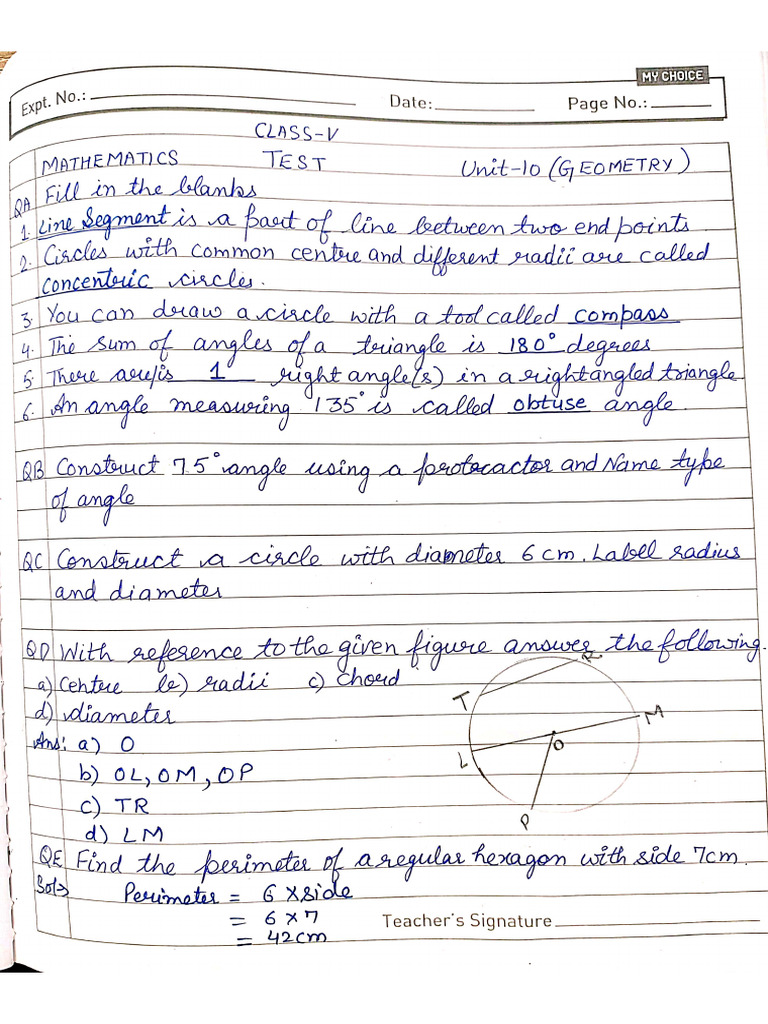 MY CHOICE
Expt. No.: Date: Page No.:
CLASS-V
MATHEMATICS TEST Unit-10 (GEOMETRY)
QA Fill in the blanks
1. Line Segment is a part of line between two end points
2. Circles with common centre and different radii are called
concentric circles.
3. You can draw a circle with a tool called compass
4. The sum of angles of a triangle is 180° degrees
5. There are/is 1 right angle(s) in a rightangled triangle
6. An angle measuring 135° is called obtuse angle.
QB Construct 75° angle using a protracactor and Name type
of angle
QC Construct a circle with diameter 6 cm. Labell radius
and diameter
QD With reference to the given figure answer the following.
a) Centre b) radii c) chord
d) diameter
Ans: a) O
b) OL, OM, OP
c) TR
d) LM
R
T
M
O
L
P
QE Find the perimeter of a regular hexagon with side 7cm.
Sol⇒ Perimeter = 6 × side
= 6 × 7
= 42cm
Teacher's Signature